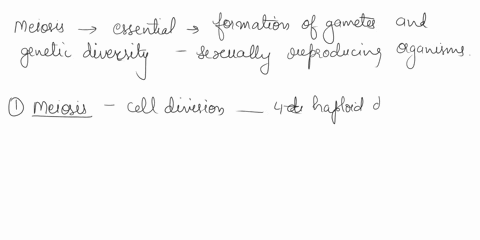 Meiosis → essential → formation of gametes and
genetic diversity – sexually reproducing organisms.
① Meiosis – cell division — 4 haploid d